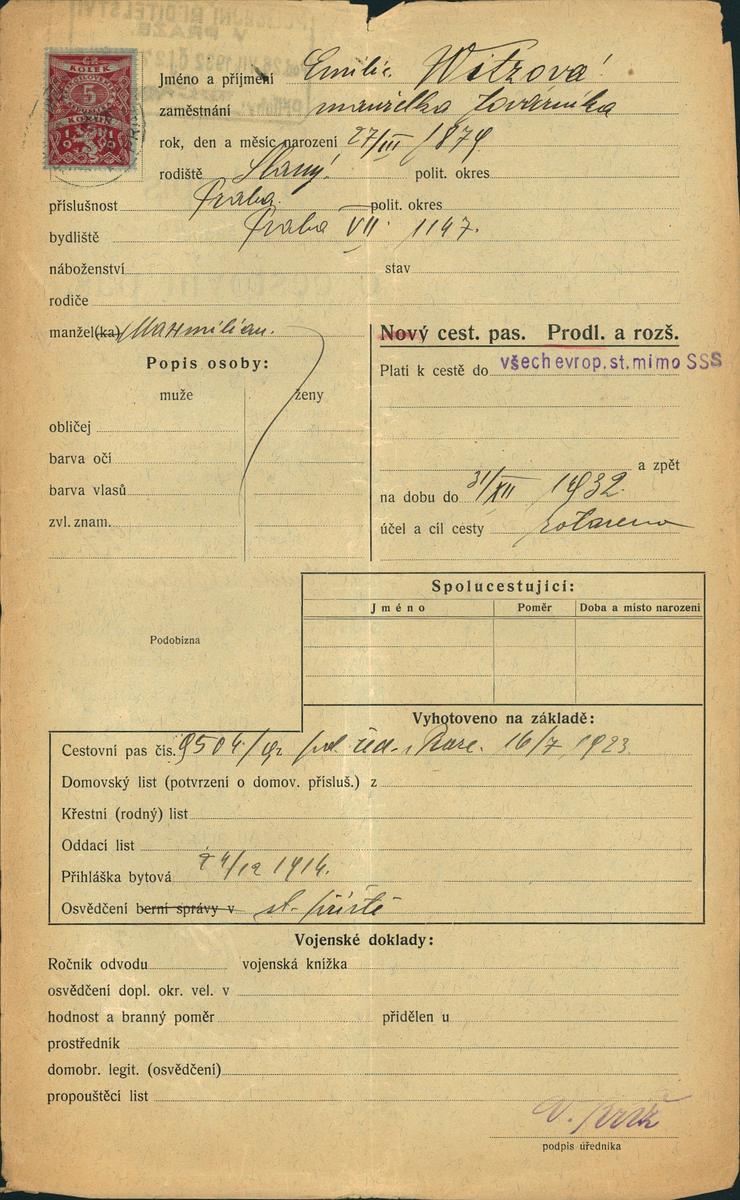 KOLEK
5
KORUN
1919
Jméno a příjmení Emilie Witzová
zaměstnání manželka továrníka
rok, den a měsíc narození 27/III 1879
rodiště Slaný polit. okres
příslušnost Praha polit. okres
bydliště Praha VII 1147.
náboženství stav
rodiče
manžel(ka) Maxmilian.
Nový cest. pas. Prodl. a rozš.
Popis osoby:
Platí k cestě do všech evrop. st. mimo SSS
muže ženy
obličej
barva očí
a zpět
barva vlasů
na dobu do 31/XII 1932
zvl. znam.
účel a cíl cesty zotavení
Spolucestující:
Jméno Poměr Doba a místo narození
Podobizna
Vyhotoveno na základě:
Cestovní pas čís. 9504 pol. řed. 16/7 1923
Domovský list (potvrzení o domov. přísluš.) z
Křestní (rodný) list
Oddací list
Přihláška bytová 24/12 1914.
Osvědčení berní správy v
Vojenské doklady:
Ročník odvodu vojenská knížka
osvědčení dopl. okr. vel. v
hodnost a branný poměr přidělen u
prostředník
domobr. legit. (osvědčení)
propouštěcí list
podpis úředníka